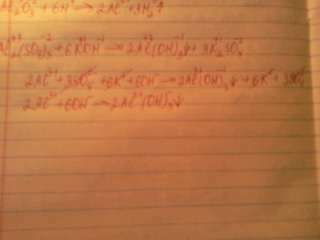 Al₂O₃ + 6H⁺ → 2Al⁺³ + 3H₂↑
Al₂(SO₄)₃ + 6KOH → 2Al(OH)₃↓ + 3K₂SO₄
2Al⁺³ + 3SO₄ + 6K⁺ + 6OH → 2Al(OH)₃↓ + 6K⁺ + 3SO₄
2Al⁺³ + 6OH → 2Al(OH)₃↓